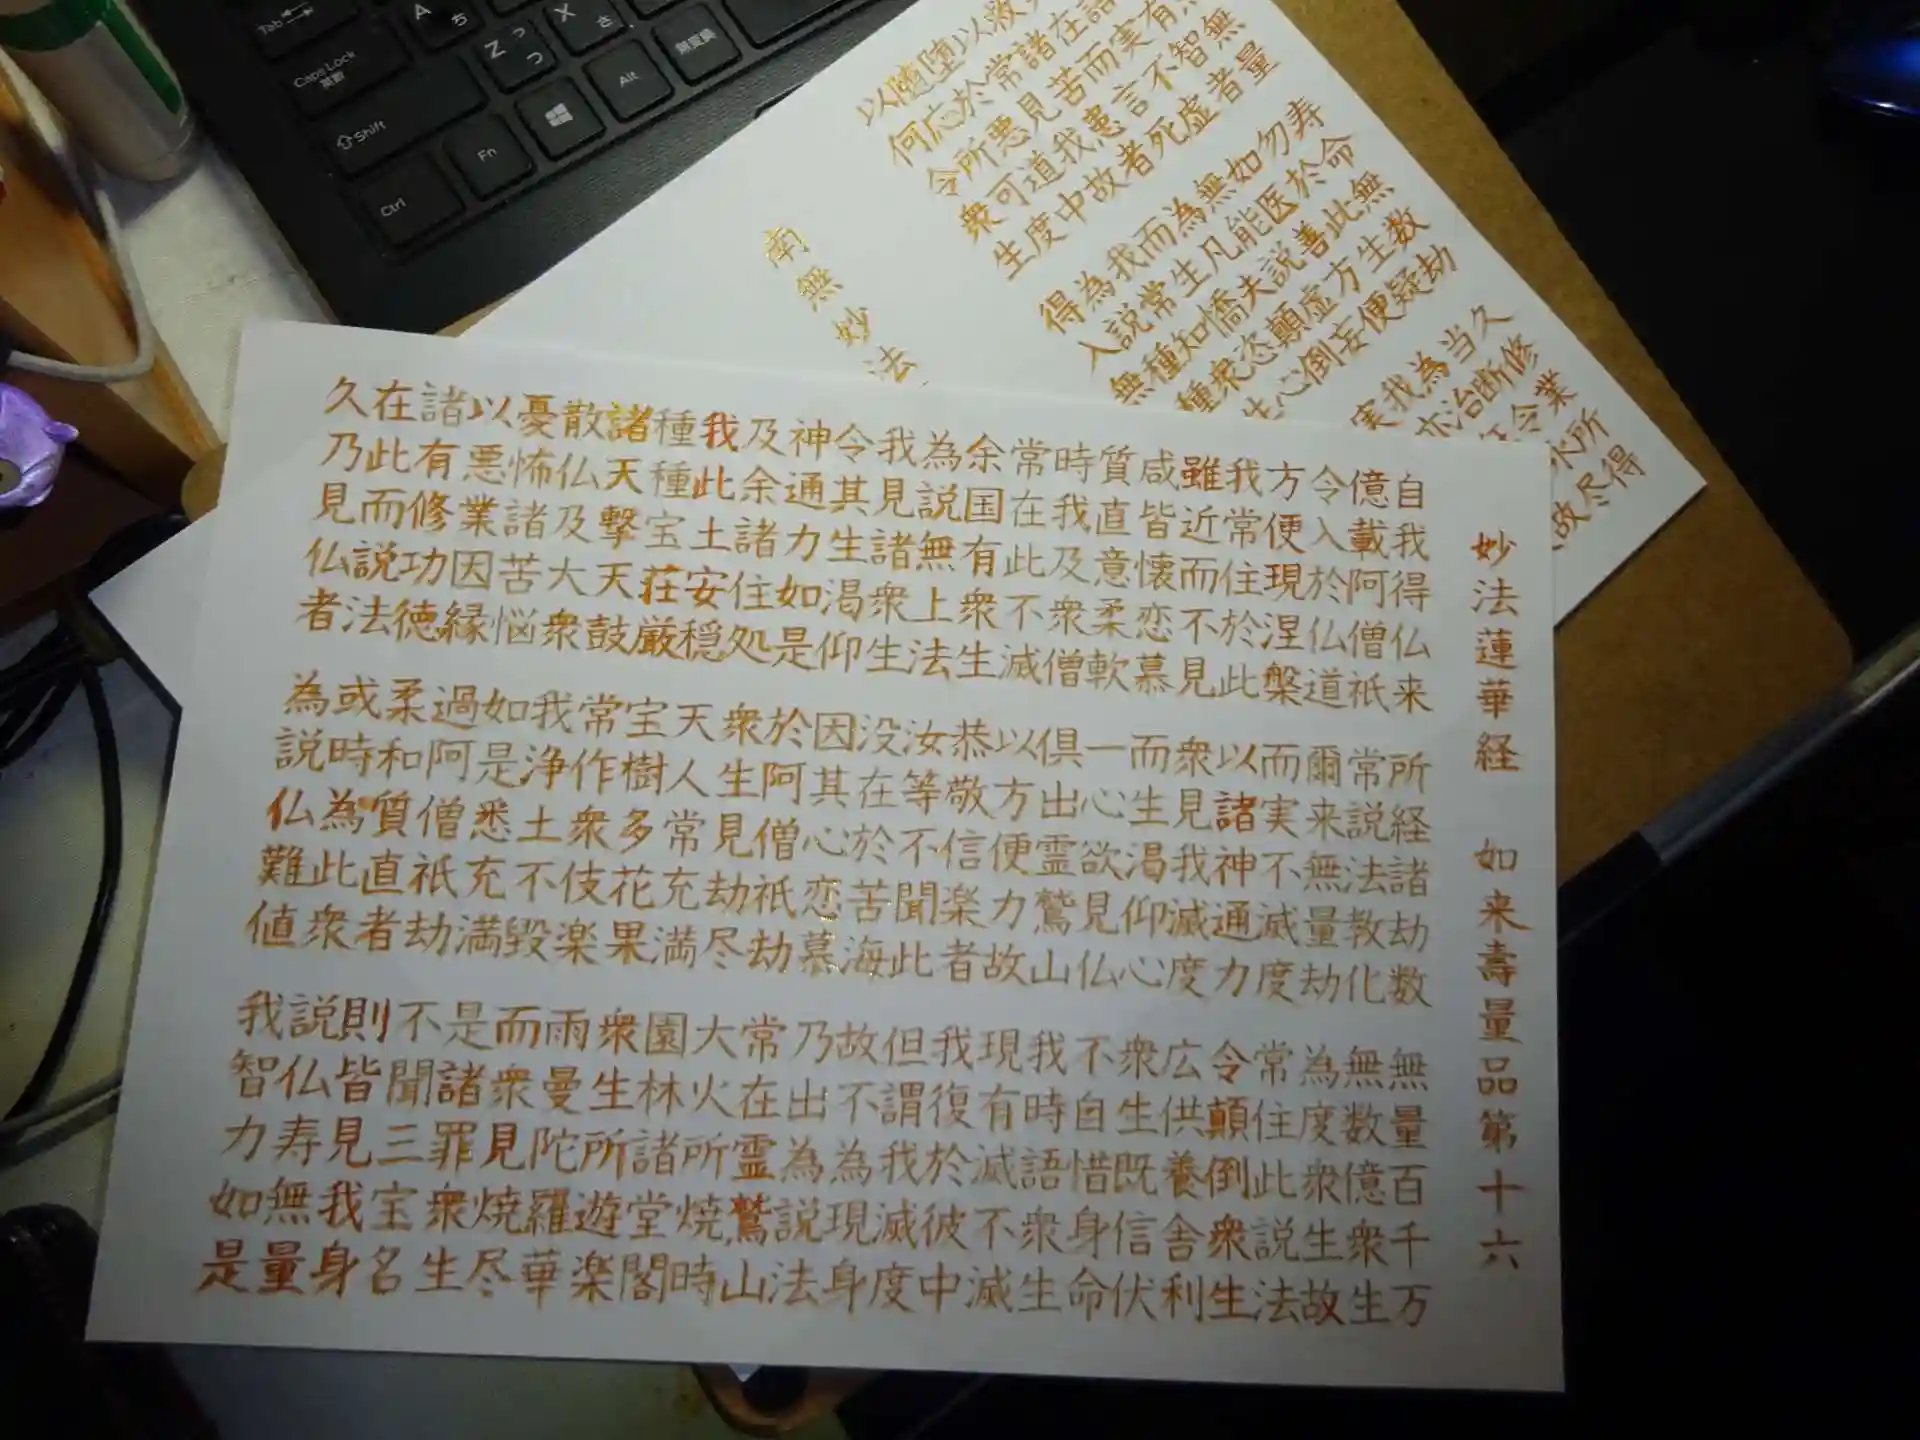 妙法蓮華経 如来壽量品第十六
自我得仏来 所経諸劫数 無量百千万
億載阿僧祇 常説法教化 無数億衆生
令入於仏道 爾来無量劫 為度衆生故
方便現涅槃 而実不滅度 常住此説法
我常住於此 以諸神通力 令顛倒衆生
雖近而不見 衆見我滅度 広供養舎利
咸皆懐恋慕 而生渇仰心 衆生既信伏
質直意柔軟 一心欲見仏 不自惜身命
時我及衆僧 俱出霊鷲山 我時語衆生
常在此不滅 以方便力故 現有滅不滅
余国有衆生 恭敬信楽者 我復於彼中
為説無上法 汝等不聞此 但謂我滅度
我見諸衆生 没在於苦海 故不為現身
令其生渇仰 因其心恋慕 乃出為説法
神通力如是 於阿僧祇劫 常在霊鷲山
及余諸住処 衆生見劫尽 大火所焼時
我此土安穏 天人常充満 園林諸堂閣
種種宝荘厳 宝樹多花果 衆生所遊楽
諸天撃天鼓 常作衆伎楽 雨曼陀羅華
散仏及大衆 我浄土不毀 而衆見焼尽
憂怖諸苦悩 如是悉充満 是諸罪衆生
以悪業因縁 過阿僧祇劫 不聞三宝名
諸有修功徳 柔和質直者 則皆見我身
在此而説法 或時為此衆 説仏寿無量
久乃見仏者 為説仏難値 我智力如是
無量 寿命無数劫 久修業所得
有智者 勿於此生疑 当断令尽
実不虚 如医善方便 為治 故
在而言死 無能説虚妄 我亦
救諸苦患者 為凡夫顛倒 実
以常見我故 而生憍恣心
堕於悪道中 我常知衆生
随応所可度 為説種種
以何令衆生 得入無
南無妙法
Tab
Caps Lock 英数
Shift
Ctrl
Fn
Alt
無変換
A ち
Z っ つ
X さ